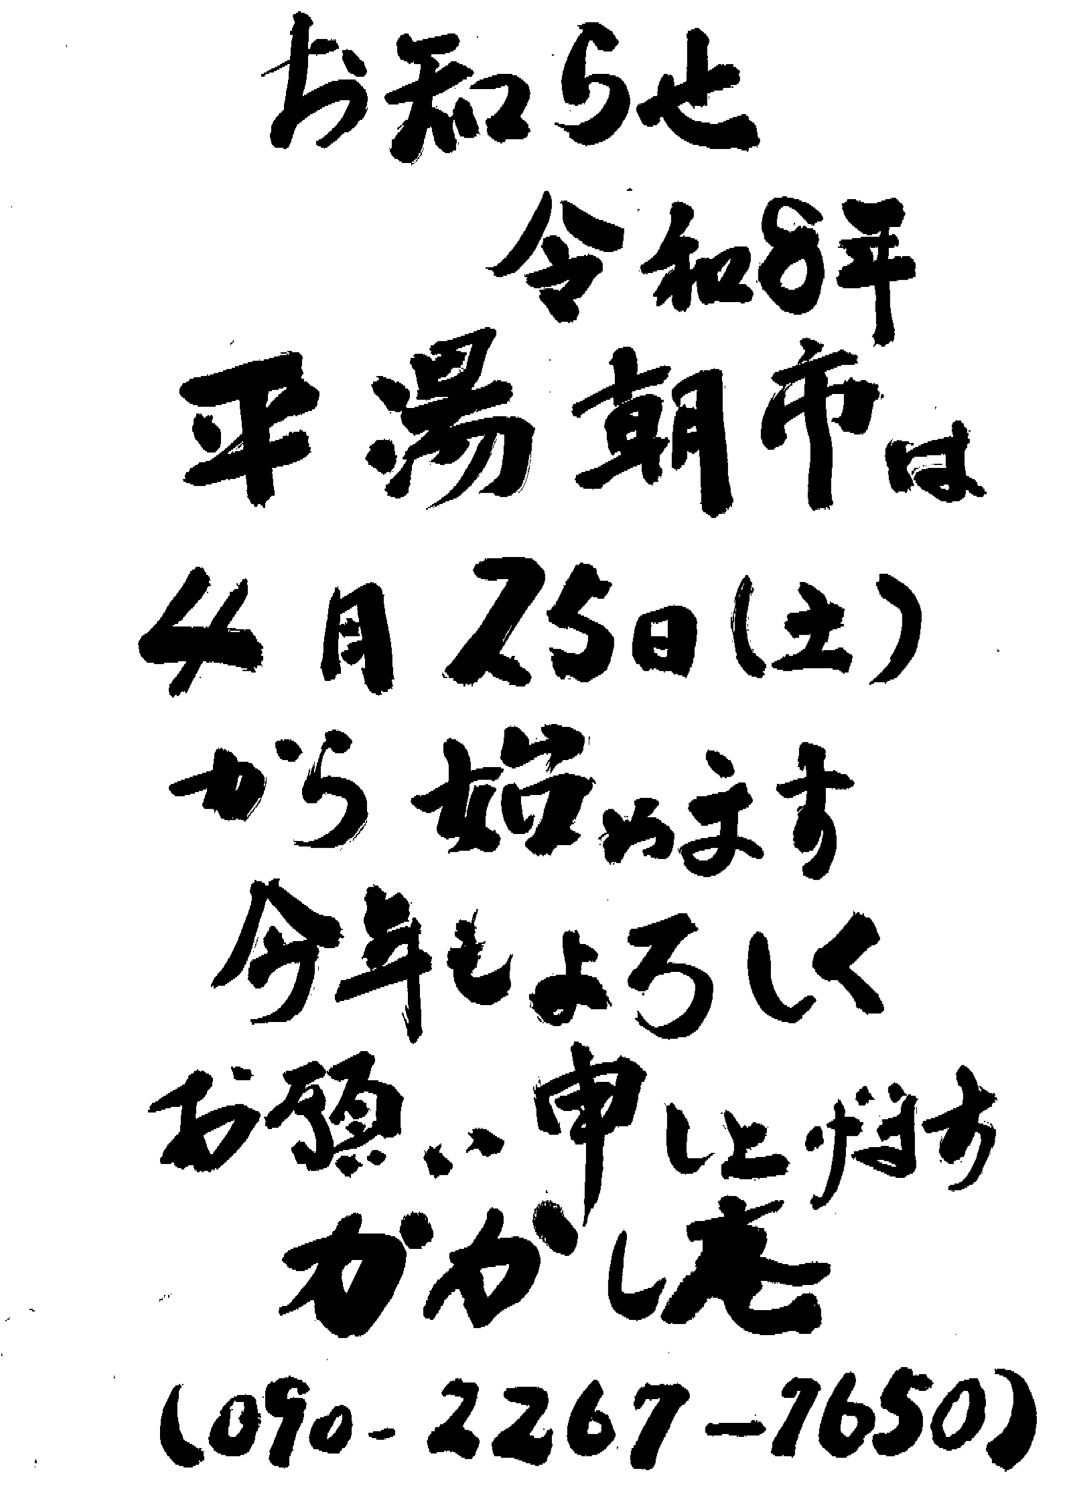 お知らせ
令和8年
平湯朝市は
4月25日(土)
から始めます
今年もよろしく
お願い申し上げます
ががし庵
(090-2267-7650)